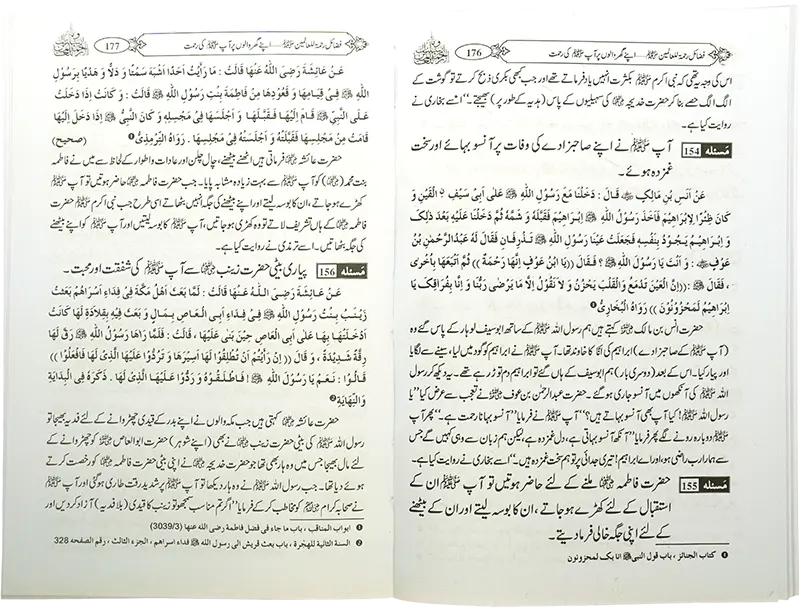 فضائل رحمۃ للعالمین ﷺ ۔۔۔۔ اپنے گھر والوں پر آپ ﷺ کی رحمت
176
اس کی وجہ یہ تھی کہ نبی اکرم ﷺ بکثرت انہیں یاد فرماتے تھے اور جب کبھی بکری ذبح کرتے تو گوشت کے
الگ الگ حصے بنا کر حضرت خدیجہ ؓ کی سہیلیوں کے پاس (ہدیہ کے طور پر) بھیجتے۔‘‘ اسے بخاری نے
روایت کیا ہے۔
مسئلہ 154 آپ ﷺ نے اپنے صاحبزادے کی وفات پر آنسو بہائے اور سخت
غمزدہ ہوئے۔
عَنْ اَنَسِ بْنِ مَالِكٍ ؓ قَالَ : دَخَلْنَا مَعَ رَسُوْلِ اللّٰهِ ﷺ عَلٰى اَبِىْ سَيْفٍ ؓ الْقَيْنِ وَ
كَانَ ظِئْرًا لِاِبْرَاهِيْمَ فَاَخَذَ رَسُوْلُ اللّٰهِ ﷺ اِبْرَاهِيْمَ فَقَبَّلَهُ وَ شَمَّهُ ثُمَّ دَخَلْنَا عَلَيْهِ بَعْدَ ذٰلِكَ
وَ اِبْرَاهِيْمُ يَجُوْدُ بِنَفْسِهِ فَجَعَلَتْ عَيْنَا رَسُوْلِ اللّٰهِ ﷺ تَذْرِفَانِ فَقَالَ لَهُ عَبْدُالرَّحْمٰنِ بْنُ
عَوْفٍ ؓ : وَ اَنْتَ يَا رَسُوْلَ اللّٰهِ ﷺ ؟ فَقَالَ ((يَا ابْنَ عَوْفٍ اِنَّهَا رَحْمَةٌ )) ثُمَّ اَتْبَعَهَا بِاُخْرٰى
، فَقَالَ ﷺ :((اِنَّ الْعَيْنَ تَدْمَعُ وَالْقَلْبَ يَحْزُنُ وَ لَا نَقُوْلُ اِلَّا مَا يَرْضٰى رَبُّنَا وَ اِنَّا بِفِرَاقِكَ يَا
اِبْرَاهِيْمُ لَمَحْزُوْنُوْنَ )) رَوَاهُ الْبُخَارِىُّ ❶
حضرت انس بن مالک ؓ کہتے ہیں ہم رسول اللہ ﷺ کے ساتھ ابو سیف لوہار کے پاس گئے وہ
(آپ ﷺ کے صاحبزادے) ابراہیم کی اَنّا کا خاوند تھا۔ آپ ﷺ نے ابراہیم کو گود میں لیا، سینے سے لگایا
اور پیار کیا۔ اس کے بعد (دوسری بار) ہم ابو سیف کے ہاں گئے تو ابراہیم دم توڑ رہے تھے۔ یہ دیکھ کر رسول
اللہ ﷺ کی آنکھوں میں آنسو جاری ہو گئے۔ حضرت عبدالرحمٰن بن عوف ؓ نے تعجب سے عرض کیا ’’یا
رسول اللہ ﷺ! کیا آپ بھی آنسو بہاتے ہیں؟‘‘ آپ ﷺ نے فرمایا ’’آنسو بہانا رحمت ہے۔‘‘ پھر آپ
ﷺ دوبارہ رونے لگے پھر فرمایا ’’آنکھ آنسو بہاتی ہے، دل غمزدہ ہے، لیکن ہم زبان سے وہی کہیں گے جس
سے ہمارا رب راضی ہو، اور اے ابراہیم! تیری جدائی پر تو ہم سخت غمزدہ ہیں۔‘‘ اسے بخاری نے روایت کیا ہے۔
مسئلہ 155 حضرت فاطمہ ؓ ملنے کے لئے حاضر ہوتیں تو آپ ﷺ ان کے
استقبال کے لئے کھڑے ہو جاتے، ان کا بوسہ لیتے اور ان کے بیٹھنے
کے لئے اپنی جگہ خالی فرما دیتے۔
❶ کتاب الجنائز ، باب قول النبی ﷺ انا بک لمحزونون
فضائل رحمۃ للعالمین ﷺ ۔۔۔۔ اپنے گھر والوں پر آپ ﷺ کی رحمت
177
عَنْ عَائِشَةَ رَضِىَ اللّٰهُ عَنْهَا قَالَتْ : مَا رَأَيْتُ اَحَدًا اَشْبَهَ سَمْتًا وَ دَلًّا وَ هَدْيًا بِرَسُوْلِ
اللّٰهِ ﷺ فِىْ قِيَامِهَا وَ قُعُوْدِهَا مِنْ فَاطِمَةَ بِنْتِ رَسُوْلِ اللّٰهِ ﷺ قَالَتْ : وَ كَانَتْ اِذَا دَخَلَتْ
عَلَى النَّبِىِّ ﷺ قَامَ اِلَيْهَا فَقَبَّلَهَا وَ اَجْلَسَهَا فِىْ مَجْلِسِهِ وَ كَانَ النَّبِىُّ ﷺ اِذَا دَخَلَ اِلَيْهَا
قَامَتْ مِنْ مَجْلِسِهَا فَقَبَّلَتْهُ وَ اَجْلَسَتْهُ فِىْ مَجْلِسِهَا . رَوَاهُ التِّرْمِذِىُّ ❶ (صحیح)
حضرت عائشہ ؓ فرماتی ہیں اٹھنے بیٹھنے، چال چلن اور عادات و اطوار کے لحاظ سے میں نے فاطمہ
بنت محمد (ﷺ) کو آپ ﷺ سے بہت زیادہ مشابہ پایا۔ جب حضرت فاطمہ ؓ حاضر ہوتیں تو آپ ﷺ
کھڑے ہو جاتے، ان کا بوسہ لیتے اور اپنے بیٹھنے کی جگہ انہیں بٹھاتے اسی طرح جب نبی اکرم ﷺ حضرت
فاطمہ ؓ کے ہاں تشریف لاتے تو وہ کھڑی ہو جاتیں، آپ ﷺ کا بوسہ لیتیں اور آپ ﷺ کو اپنے بیٹھنے
کی جگہ بٹھاتیں۔ اسے ترمذی نے روایت کیا ہے۔
مسئلہ 156 پیاری بیٹی حضرت زینب ؓ سے آپ ﷺ کی شفقت اور محبت۔
عَنْ عَائِشَةَ رَضِىَ اللّٰهُ عَنْهَا قَالَتْ : لَمَّا بَعَثَ اَهْلُ مَكَّةَ فِىْ فِدَاءِ اَسْرَاهُمْ بَعَثَتْ
زَيْنَبُ بِنْتُ رَسُوْلِ اللّٰهِ ﷺ فِىْ فِدَاءِ اَبِى الْعَاصِ بِمَالٍ وَ بَعَثَتْ فِيْهِ بِقِلَادَةٍ لَهَا كَانَتْ
اَدْخَلَتْهَا بِهَا عَلٰى اَبِى الْعَاصِ حِيْنَ بَنٰى عَلَيْهَا ، قَالَتْ : فَلَمَّا رَاٰهَا رَسُوْلُ اللّٰهِ ﷺ رَقَّ لَهَا
رِقَّةً شَدِيْدَةً ، وَ قَالَ (( اِنْ رَاَيْتُمْ اَنْ تُطْلِقُوْا لَهَا اَسِيْرَهَا وَ تَرُدُّوْا عَلَيْهَا الَّذِىْ لَهَا فَافْعَلُوْا ))
قَالُوْا : نَعَمْ يَا رَسُوْلَ اللّٰهِ ﷺ ! فَاَطْلَقُوْهُ وَ رَدُّوْا عَلَيْهَا الَّذِىْ لَهَا . ذَكَرَهُ فِى الْبِدَايَةِ
وَ النِّهَايَةِ ❷
حضرت عائشہ ؓ کہتی ہیں جب مکہ والوں نے اپنے بدر کے قیدی چھڑوانے کے لئے فدیہ بھیجا تو
رسول اللہ ﷺ کی بیٹی حضرت زینب ؓ نے بھی (اپنے شوہر) حضرت ابو العاص ؓ کو چھڑوانے کے
لئے مال بھیجا جس میں وہ ہار بھی تھا جو حضرت خدیجہ ؓ نے اپنی بیٹی حضرت فاطمہ ؓ کو رخصت کرتے
ہوئے دیا تھا۔ جب رسول اللہ ﷺ نے وہ ہار دیکھا تو آپ ﷺ پر شدید رقت طاری ہو گئی اور آپ ﷺ
نے صحابہ کرام ؓ کو مخاطب کر کے فرمایا ’’اگر تم مناسب سمجھو تو زینب کا قیدی (بلا فدیہ) آزاد کر دیں اور
❶ ابواب المناقب ، باب ما جاء فی فضل فاطمۃ رضی اللہ عنہا (3039/3)
❷ السنة الثانیة للھجرة ، باب بعث قریش الی رسول اللہ ﷺ فداء اسراھم ، الجزء الثالث ، رقم الصفحہ 328